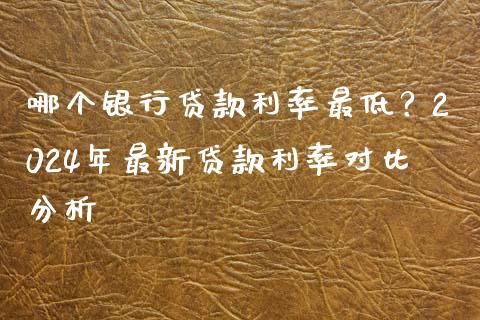 哪个银行贷款利率最低？2
024年最新贷款利率对比
分析